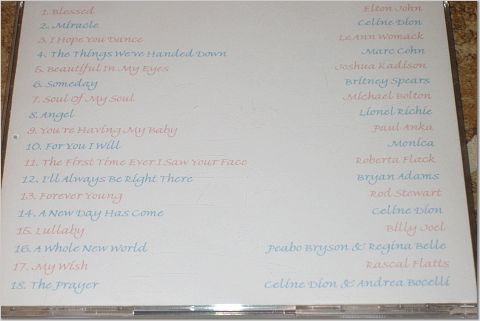 1. Blessed Elton John
2. Miracle Celine Dion
3. I Hope You Dance LeAnn Womack
4. The Things We've Handed Down Marc Cohn
5. Beautiful In My Eyes Joshua Kadison
6. Someday Britney Spears
7. Soul Of My Soul Michael Bolton
8. Angel Lionel Richie
9. You're Having My Baby Paul Anka
10. For You I Will Monica
11. The First Time Ever I Saw Your Face Roberta Flack
12. I'll Always Be Right There Bryan Adams
13. Forever Young Rod Stewart
14. A New Day Has Come Celine Dion
15. Lullaby Billy Joel
16. A Whole New World Peabo Bryson & Regina Belle
17. My Wish Rascal Flatts
18. The Prayer Celine Dion & Andrea Bocelli